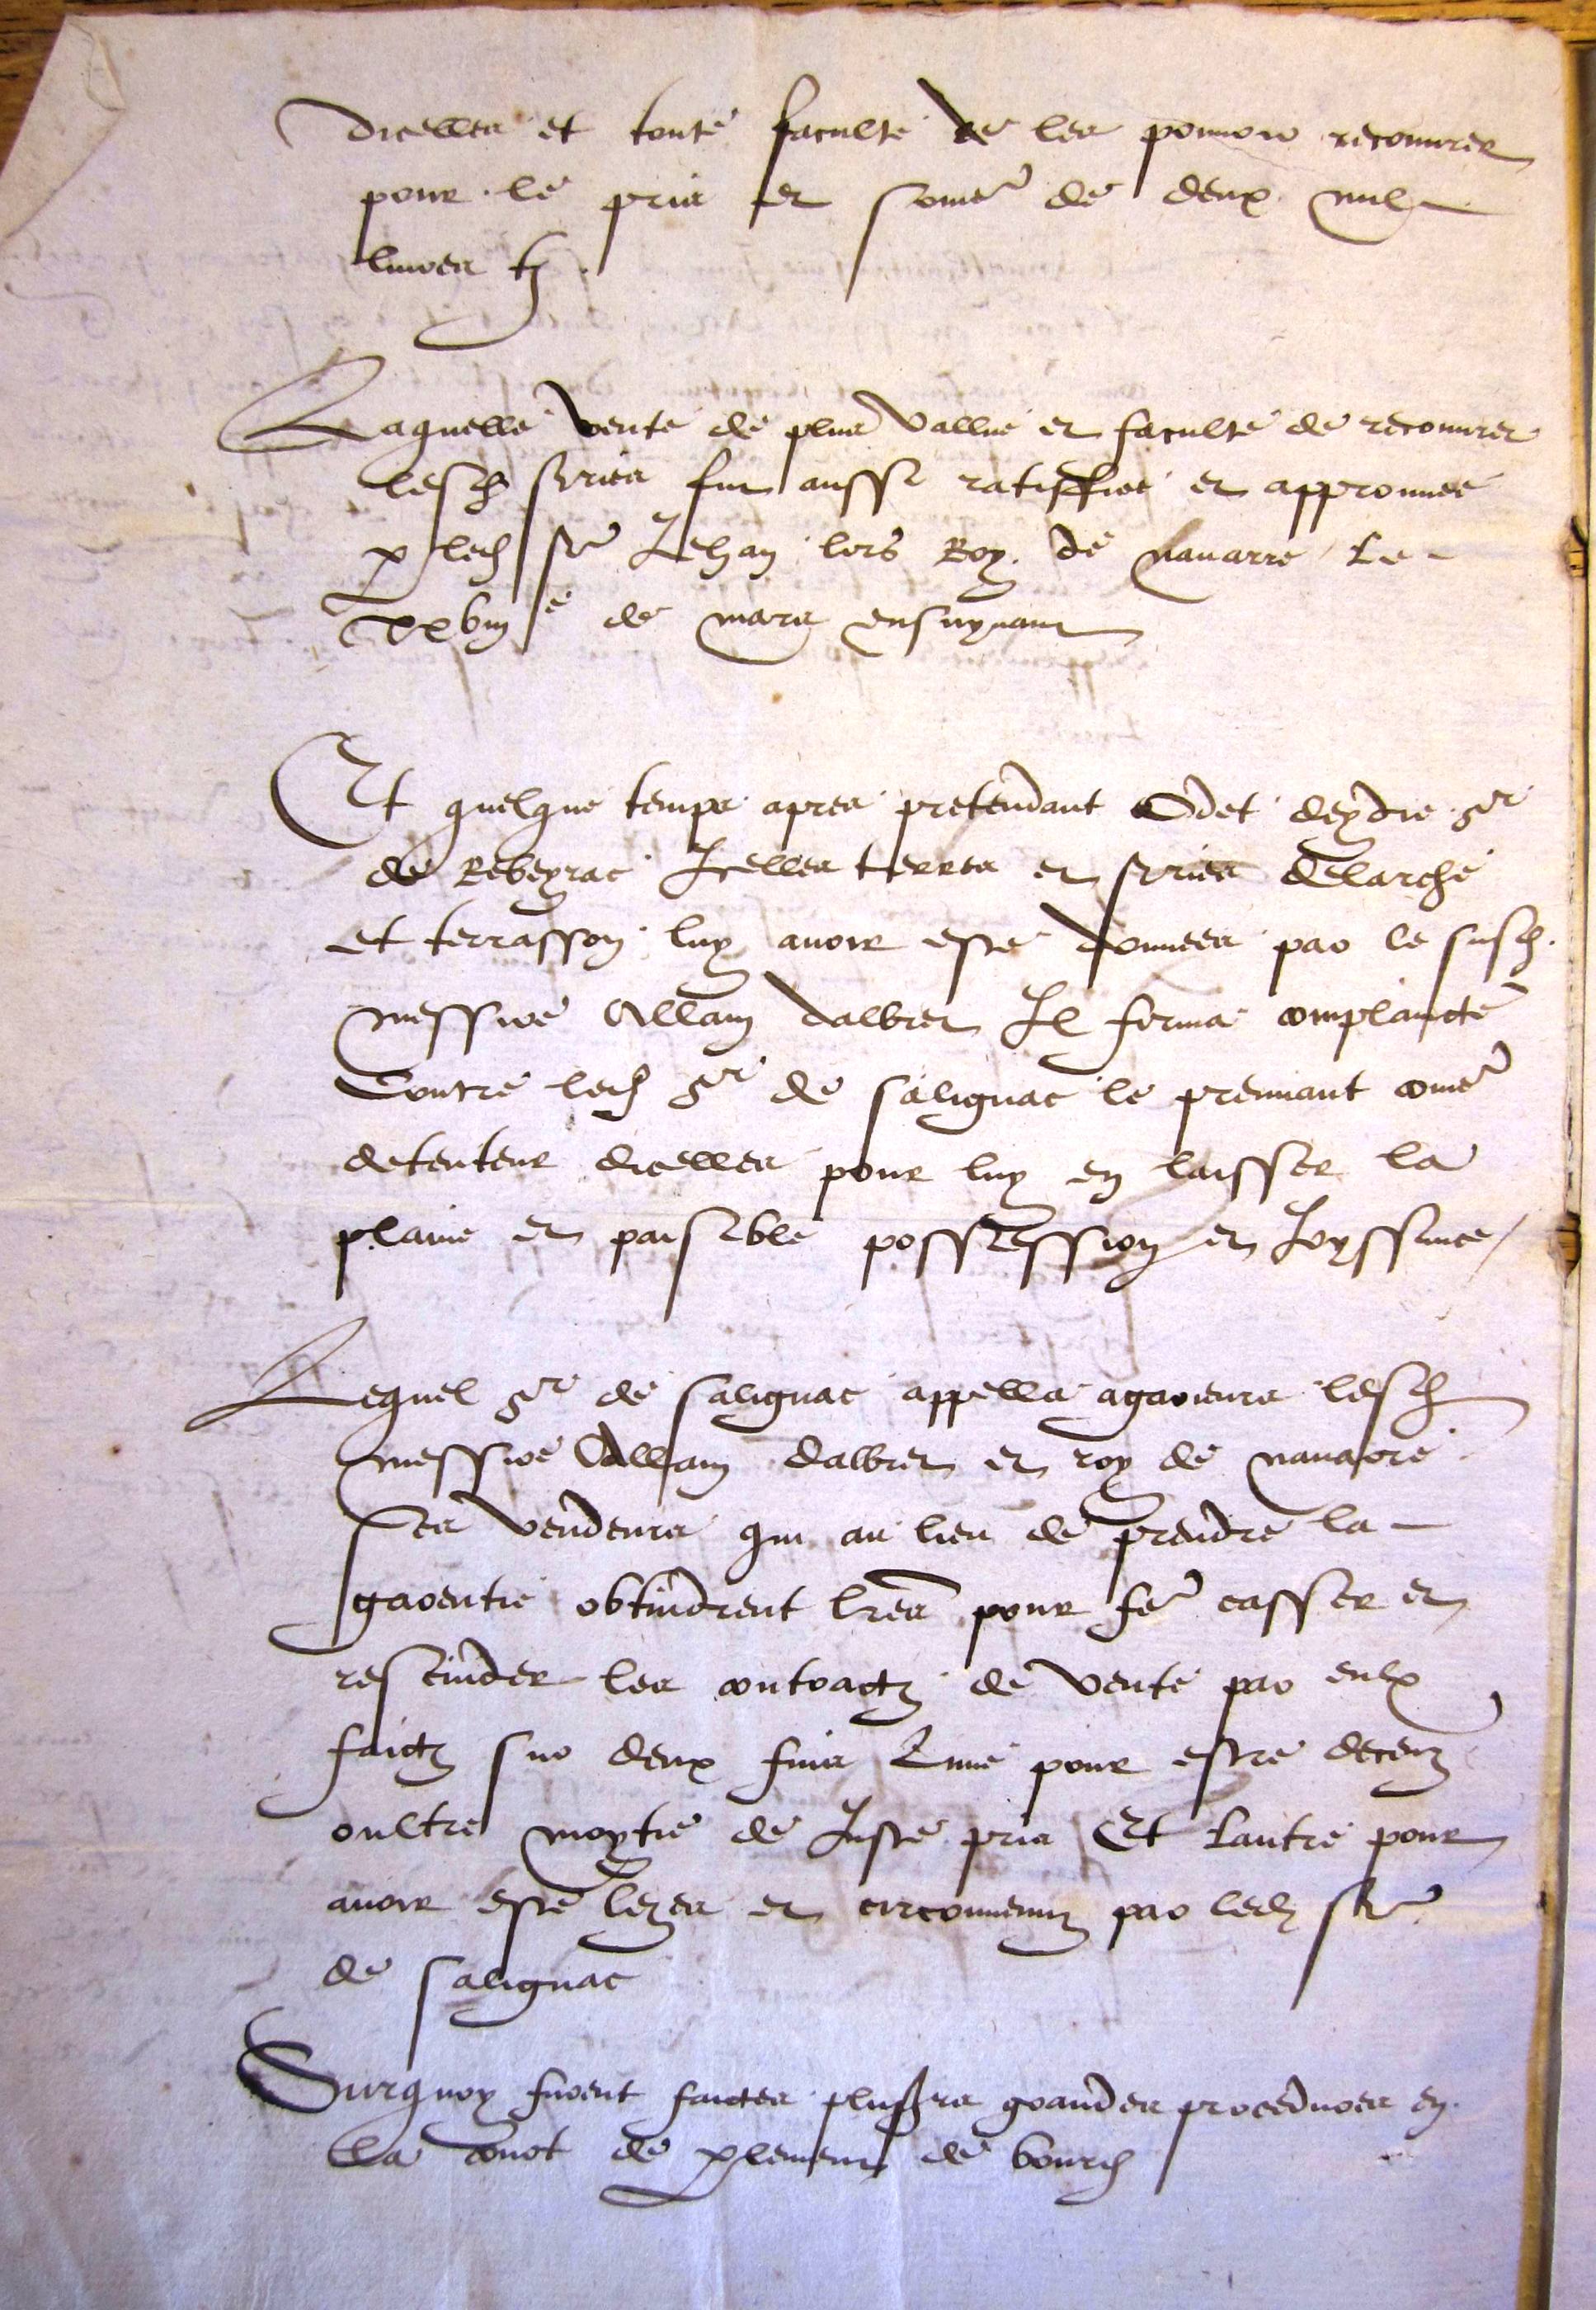 dicelles et toute faculte de les pouvoir recouvrer
pour le pris et some de deux mil
livres tz.
Laquelle vente de plus vallue et faculte de recouvrer
lesd sries fut aussi ratiffiee et approuvee
p led sr Jehan lors Roy de navarre le
xxviije de mars ensuyvant
Et quelque temps apres pretendant Odet deydie sr
de Rebeyrac Icelles terres et sries de larche
et terrasson luy avoir este donnees par le susd.
messire Allain dalbret Il forma complaincte
Contre led sr de salignac le prennant come
detenteur dicelles pour luy en laisser la
plaine et paisible possession et Joyssance /
Lequel sr de salignac appella agarieurs lesd
messire Allain dalbret et roy de navarre
ses vendeurs qui au lieu de prendre la
garentie obtindrent lres pour fe casser et
rescinder les contractz de vente par eulx
faictz sur deux fins Lune pour estre deceuz
oultre moytie de Juste pris Et lautre pour
avoir este lezes et circonvenuz par led sr
de salignac
Surquoy furent faictes plusrs grandes procedures en
la court de plement de bourd